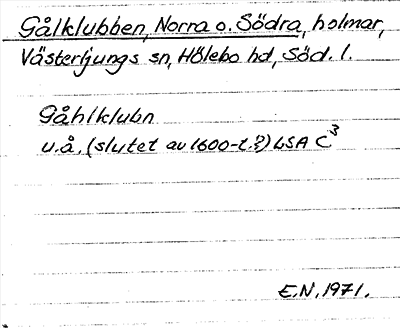 Gålklubben, Norra o. Södra, holmar,
Västerljungs sn, Hölebo hd, Söd. l.
Gåhlklubn
u.å. (slutet av 1600-t.?) LSA C³
E.N. 1971.